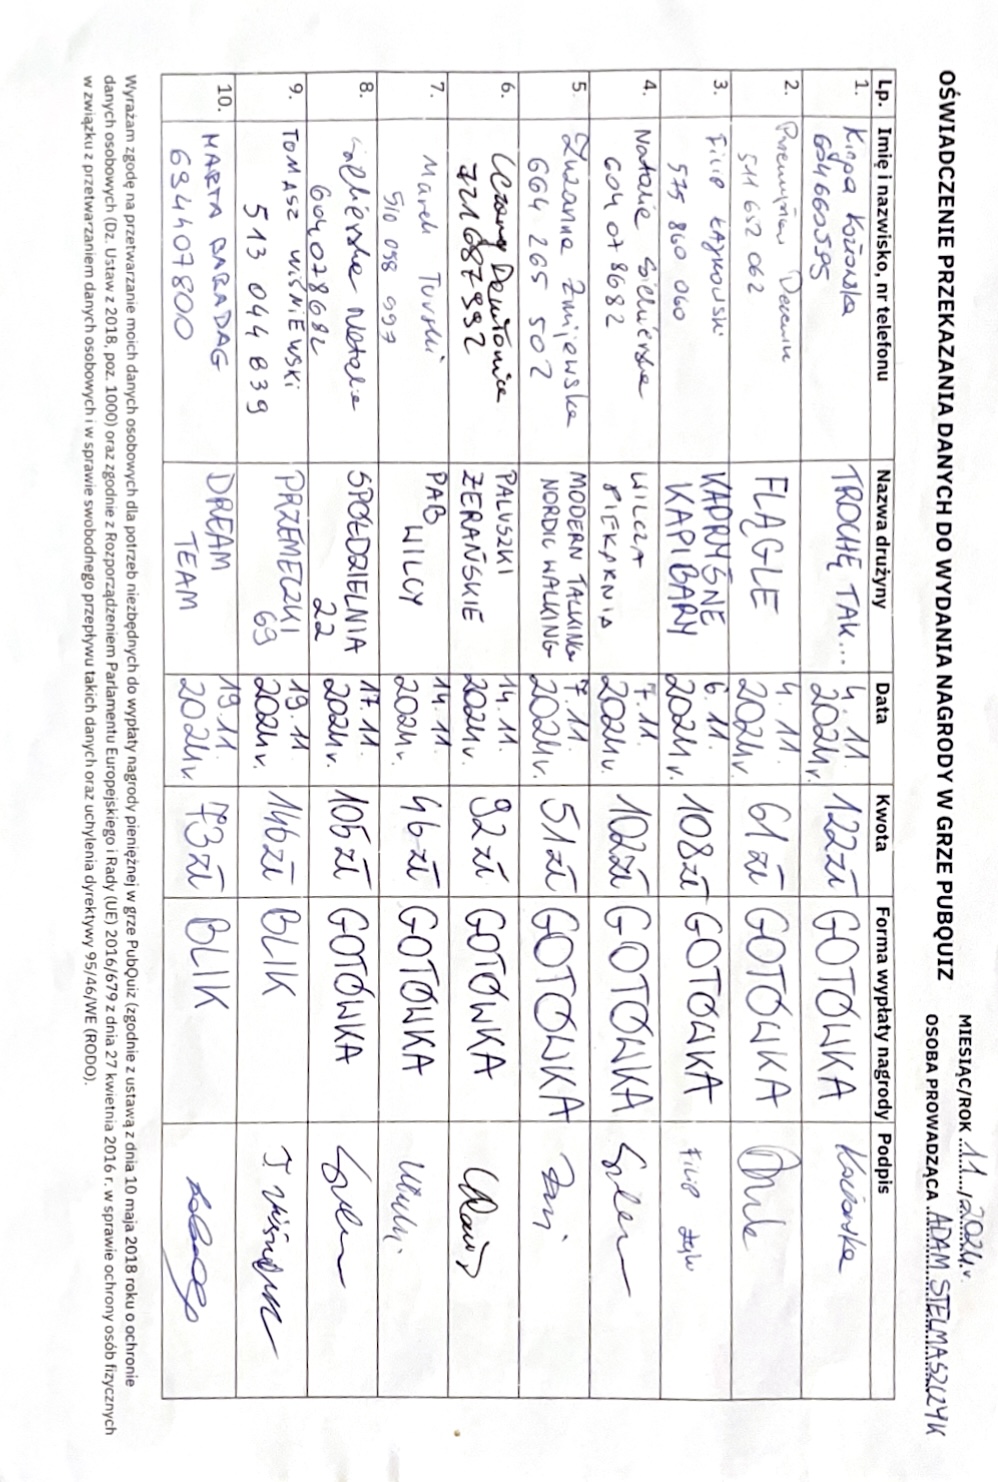 OŚWIADCZENIE PRZEKAZANIA DANYCH DO WYDANIA NAGRODY W GRZE PUBQUIZ
MIESIĄC/ROK 11/2024r.
OSOBA PROWADZĄCA ADAM STELMASZCZYK
Lp. Imię i nazwisko, nr telefonu Nazwa drużyny Data Kwota Forma wypłaty nagrody Podpis
1. Kinga TROCHĘ TAK... 4.11. 122zł GOTÓWKA
2024r.
2. FLĄGLE 4.11. 61zł GOTÓWKA
511 652 062 2024r.
3. FILIP KADRYŚNE 6.11. 108zł GOTÓWKA FILIP
575 860 060 KAPIBARY 2024r.
4. Natalia WILCZA 7.11. 102zł GOTÓWKA
604078682 PIEKARNIA 2024r.
5. Zuzanna Żmijewska MODERN TALKING 7.11. 51zł GOTÓWKA
664 265 502 NORDIC WALKING 2024r.
6. PALUSZKI 14.11. 92zł GOTÓWKA
721687992 ŻERAŃSKIE 2024r.
7. Marek Turski PAB 14.11. 46zł GOTÓWKA
510 098 997 WILCY 2024r.
8. Natalia SPÓŁDZIELNIA 17.11. 105zł GOTÓWKA
604078682 22 2024r.
9. TOMASZ WIŚNIEWSKI PRZEMECZKI 19.11. 146zł BLIK
513 044 839 69 2024r.
10. MARTA BARADAG DREAM 19.11. 73zł BLIK
694407800 TEAM 2024r.
Wyrażam zgodę na przetwarzanie moich danych osobowych dla potrzeb niezbędnych do wypłaty nagrody pieniężnej w grze PubQuiz (zgodnie z ustawą z dnia 10 maja 2018 roku o ochronie
danych osobowych (Dz. Ustaw z 2018, poz. 1000) oraz zgodnie z Rozporządzeniem Parlamentu Europejskiego i Rady (UE) 2016/679 z dnia 27 kwietnia 2016 r. w sprawie ochrony osób fizycznych
w związku z przetwarzaniem danych osobowych i w sprawie swobodnego przepływu takich danych oraz uchylenia dyrektywy 95/46/WE (RODO).